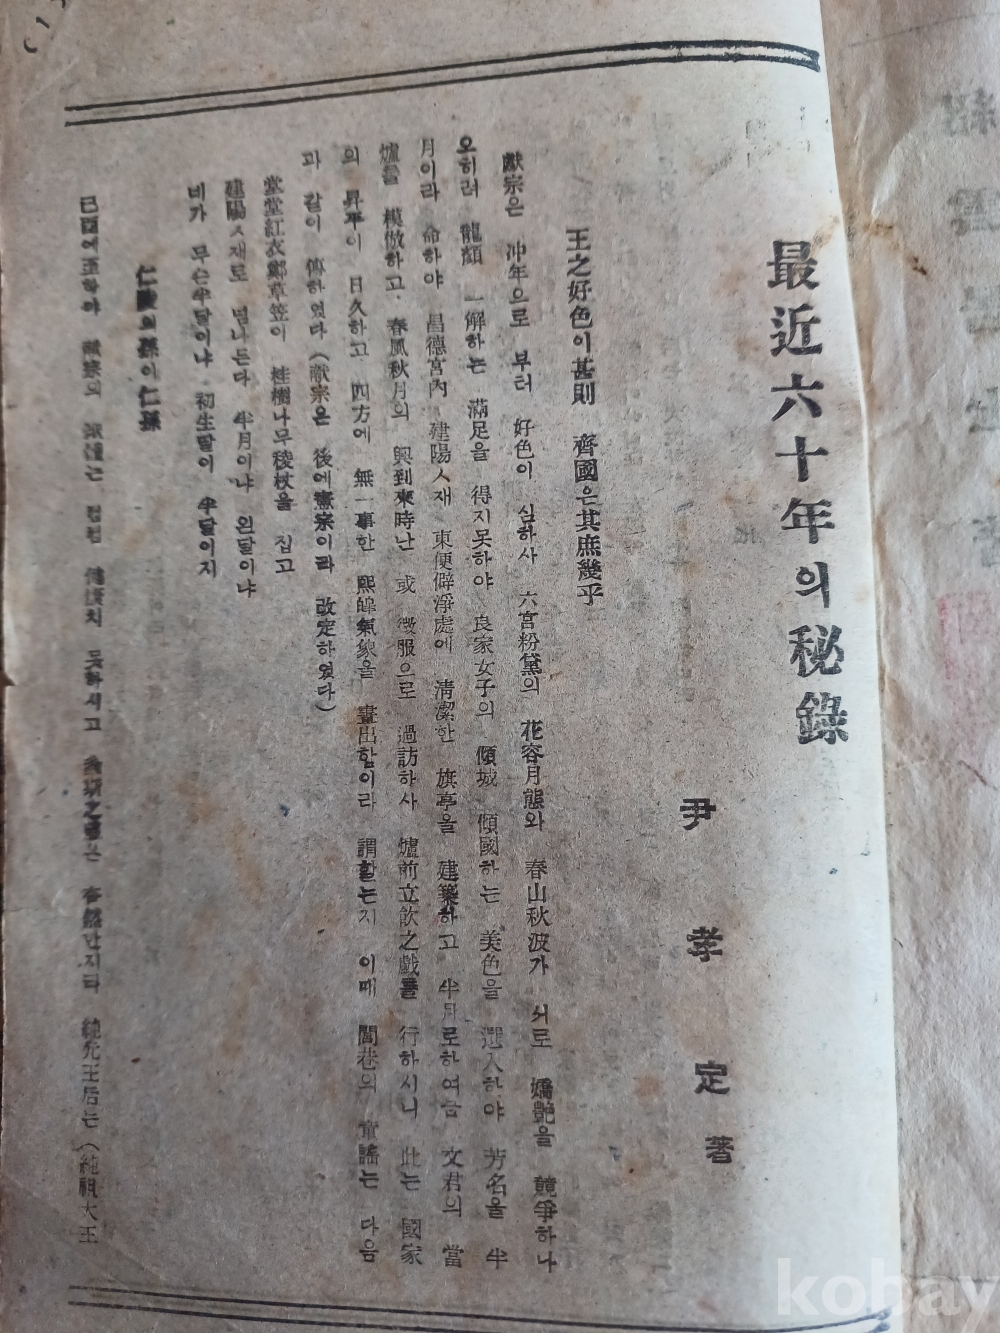 最近六十年의秘錄
尹孝定著
王之好色이甚則 齊國은其庶幾乎
獻宗은 冲年으로 부터 好色이 심하사 六宮粉黛의 花容月態와 春山秋波가 서로 嬌艶을 競爭하나
오히려 龍顏 一解하는 滿足을 得지못하야 良家女子의 傾城 傾國하는 美色을 選入하야 芳名을 半
月이라 命하야 昌德宮內 建陽人재 東便僻淨處에 淸潔한 旗亭을 建築하고 半月로하여금 文君의 當
爐를 模倣하고 春風秋月의 興到來時난 或 微服으로 過訪하사 爐前立飮之戲를 行하시니 此는 國家
의 昇平이 日久하고 四方에 無一事한 熙皥氣象을 畫出함이라 謂할는지 이때 閭巷의 童謠는 다음
과 같이 傳하였다(獻宗은 後에憲宗이라 改定하였다)
堂堂紅衣鄭草笠이 桂樹나무稜杖을 집고
建陽人재로 넘나든다 半月이냐 왼달이냐
네가 무슨半달이냐 初生달이 半달이지
仁陵의孫이仁孫
己酉에至하야 憲宗의 는 점점 健康치 못하시고 는 杳然한지라 純元王后는(純祖大王
kobay